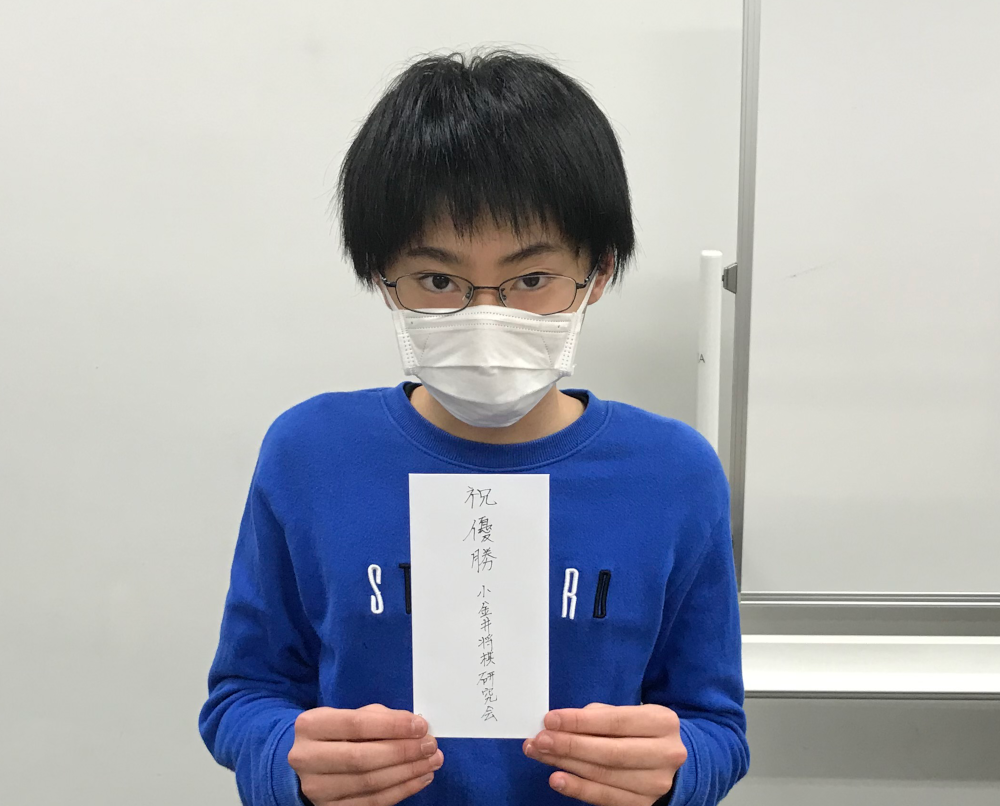 祝優勝 小金井将棋研究会
S
RD
A